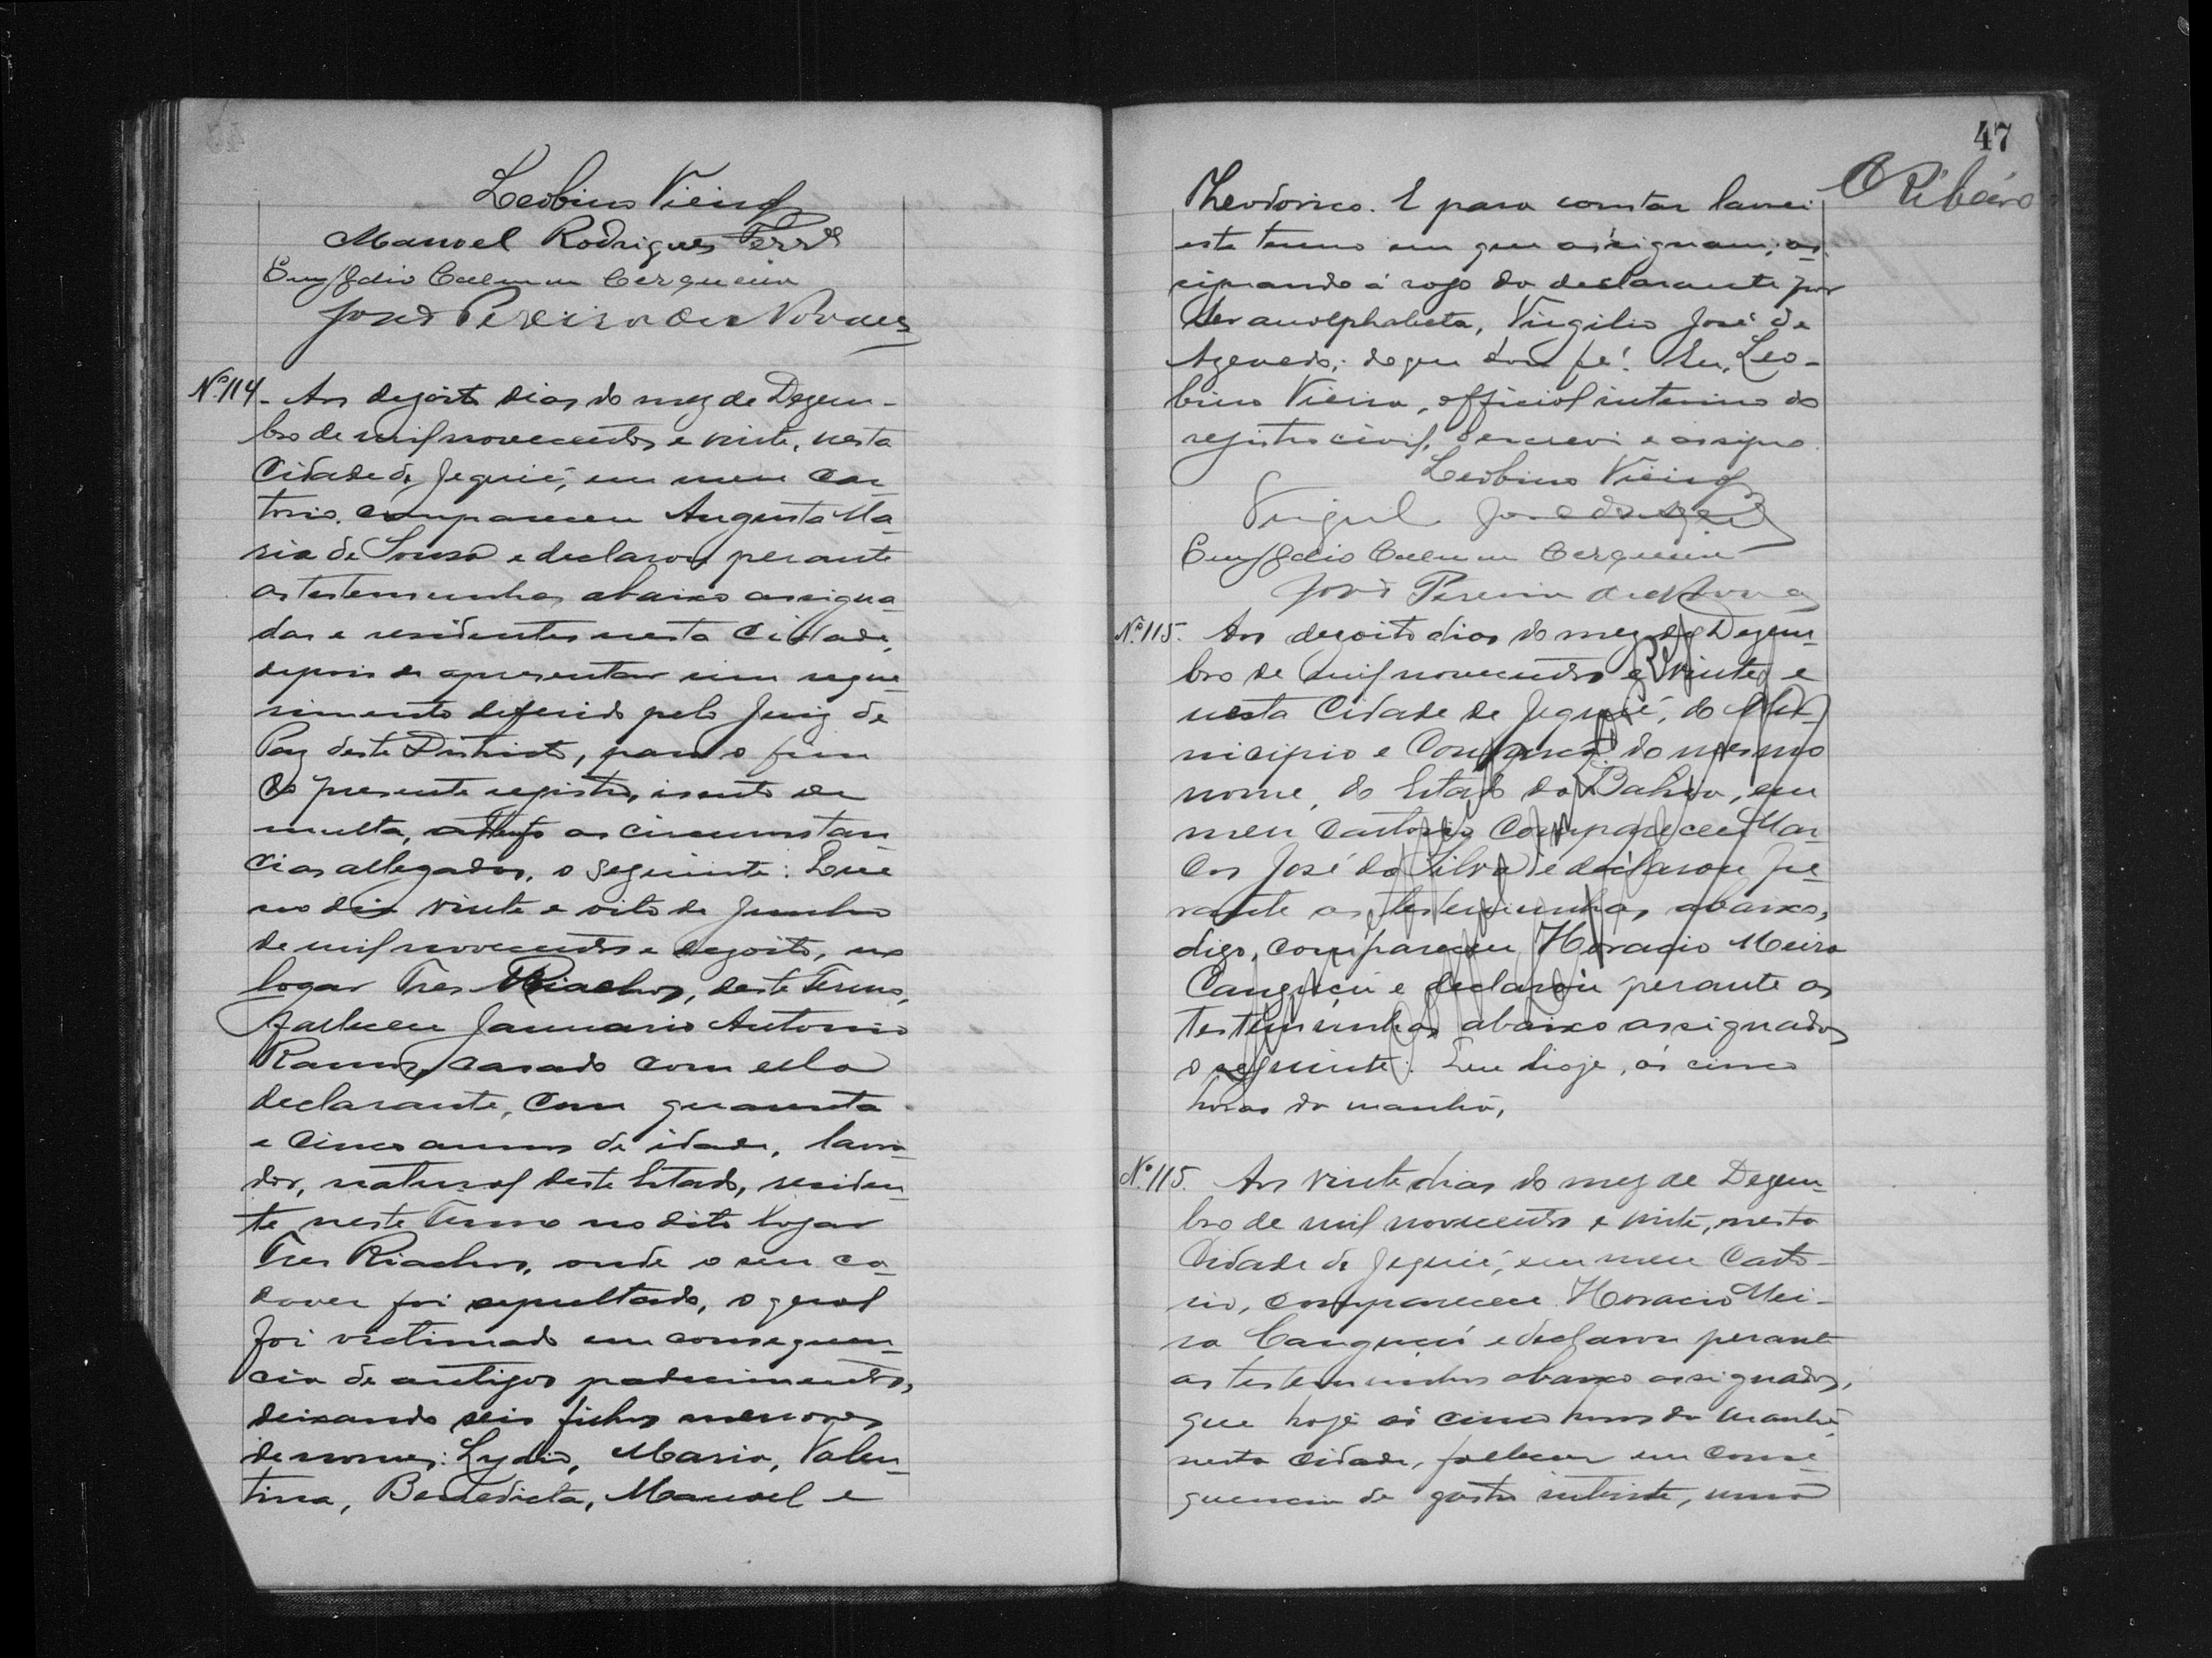 Leobino Vieira
Manoel Rodrigues Ferrª
Emygdio Caemum Cerqueira
José Pereira de Novaes
Nº 114. Aos dezoito dias do mez de Dezem-
bro de mil novecentos e vinte, nesta
Cidade de Jequié, em meu Car-
torio, compareceu Augusta Ma-
ria de Sousa e declarou perante
as testemunhas abaixo assigna-
das e residentes nesta Cidade,
depois de apresentar um reque-
rimento deferido pelo Juiz de
Paz deste Districto, para o fim
do presente registro, isento de
multa, attentas as circumstan-
cias allegadas, o seguinte: Que
no dia vinte e oito de Junho
de mil novecentos e dezoito, no
logar Tres Riachos, deste Termo,
falleceu Januario Antonio
Ramos, casado com ella
declarante, com quarenta
e cinco annos de idade, lavra-
dor, natural deste Estado, residen-
te neste Termo no dito logar
Tres Riachos, onde o seu ca-
daver foi sepultado, o qual
foi victimado em consequen-
cia de antigos padecimentos,
deixando seis filhos menores
de nomes: Lydia, Maria, Valen-
tina, Benedicta, Manoel e
47
O Ribeiro
Theodorico. E para constar lavrei
este termo em que assignam; as-
signando á rogo da declarante por
ser analphabeta, Virgilio José de
Azevedo; do que dou fé. Eu, Leo-
bino Vieira, official interino do
registro civil, o escrevi e assigno.
Leobino Vieira
José de Azevedo
Emygdio Caemum Cerqueira
José Pereira de Novaes
Nº 115. Aos dezoito dias do mez de Dezem-
bro de mil novecentos e vinte, e
nesta Cidade de Jequié, do Mu-
nicipio e Comarca do mesmo
nome, do Estado da Bahia, em
meu Cartorio compareceu Mar-
cos José da Silva e declarou pe-
rante as testemunhas abaixo,
digo, compareceu Horacio Meira
Canguçú e declarou perante as
testemunhas abaixo assignadas
o seguinte: Que hoje, ás cinco
horas da manhã,
Nº 115. Aos vinte dias do mez de Dezem-
bro de mil novecentos e vinte, nesta
Cidade de Jequié, em meu Carto-
rio, compareceu Horacio Mei-
ra Canguçú e declarou perante
as testemunhas abaixo assignadas,
que hoje ás cinco horas da manhã,
nesta cidade, falleceu em conse-
quencia de gastro interite, uma